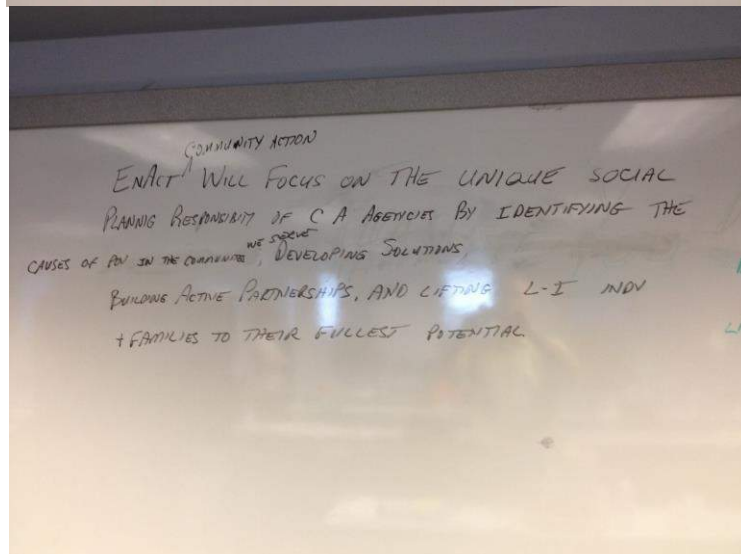 COMMUNITY ACTION
ENACT WILL FOCUS ON THE UNIQUE SOCIAL
PLANNIG RESPONSIBITY OF C A AGENCIES BY IDENTIFYING THE
WE SERVE
CAUSES OF POV IN THE COMMUNITIES, DEVELOPING SOLUTIONS,
BUILDING ACTIVE PARTNERSHIPS, AND LIFTING L-I INDV
+ FAMILIES TO THEIR FULLEST POTENTIAL.